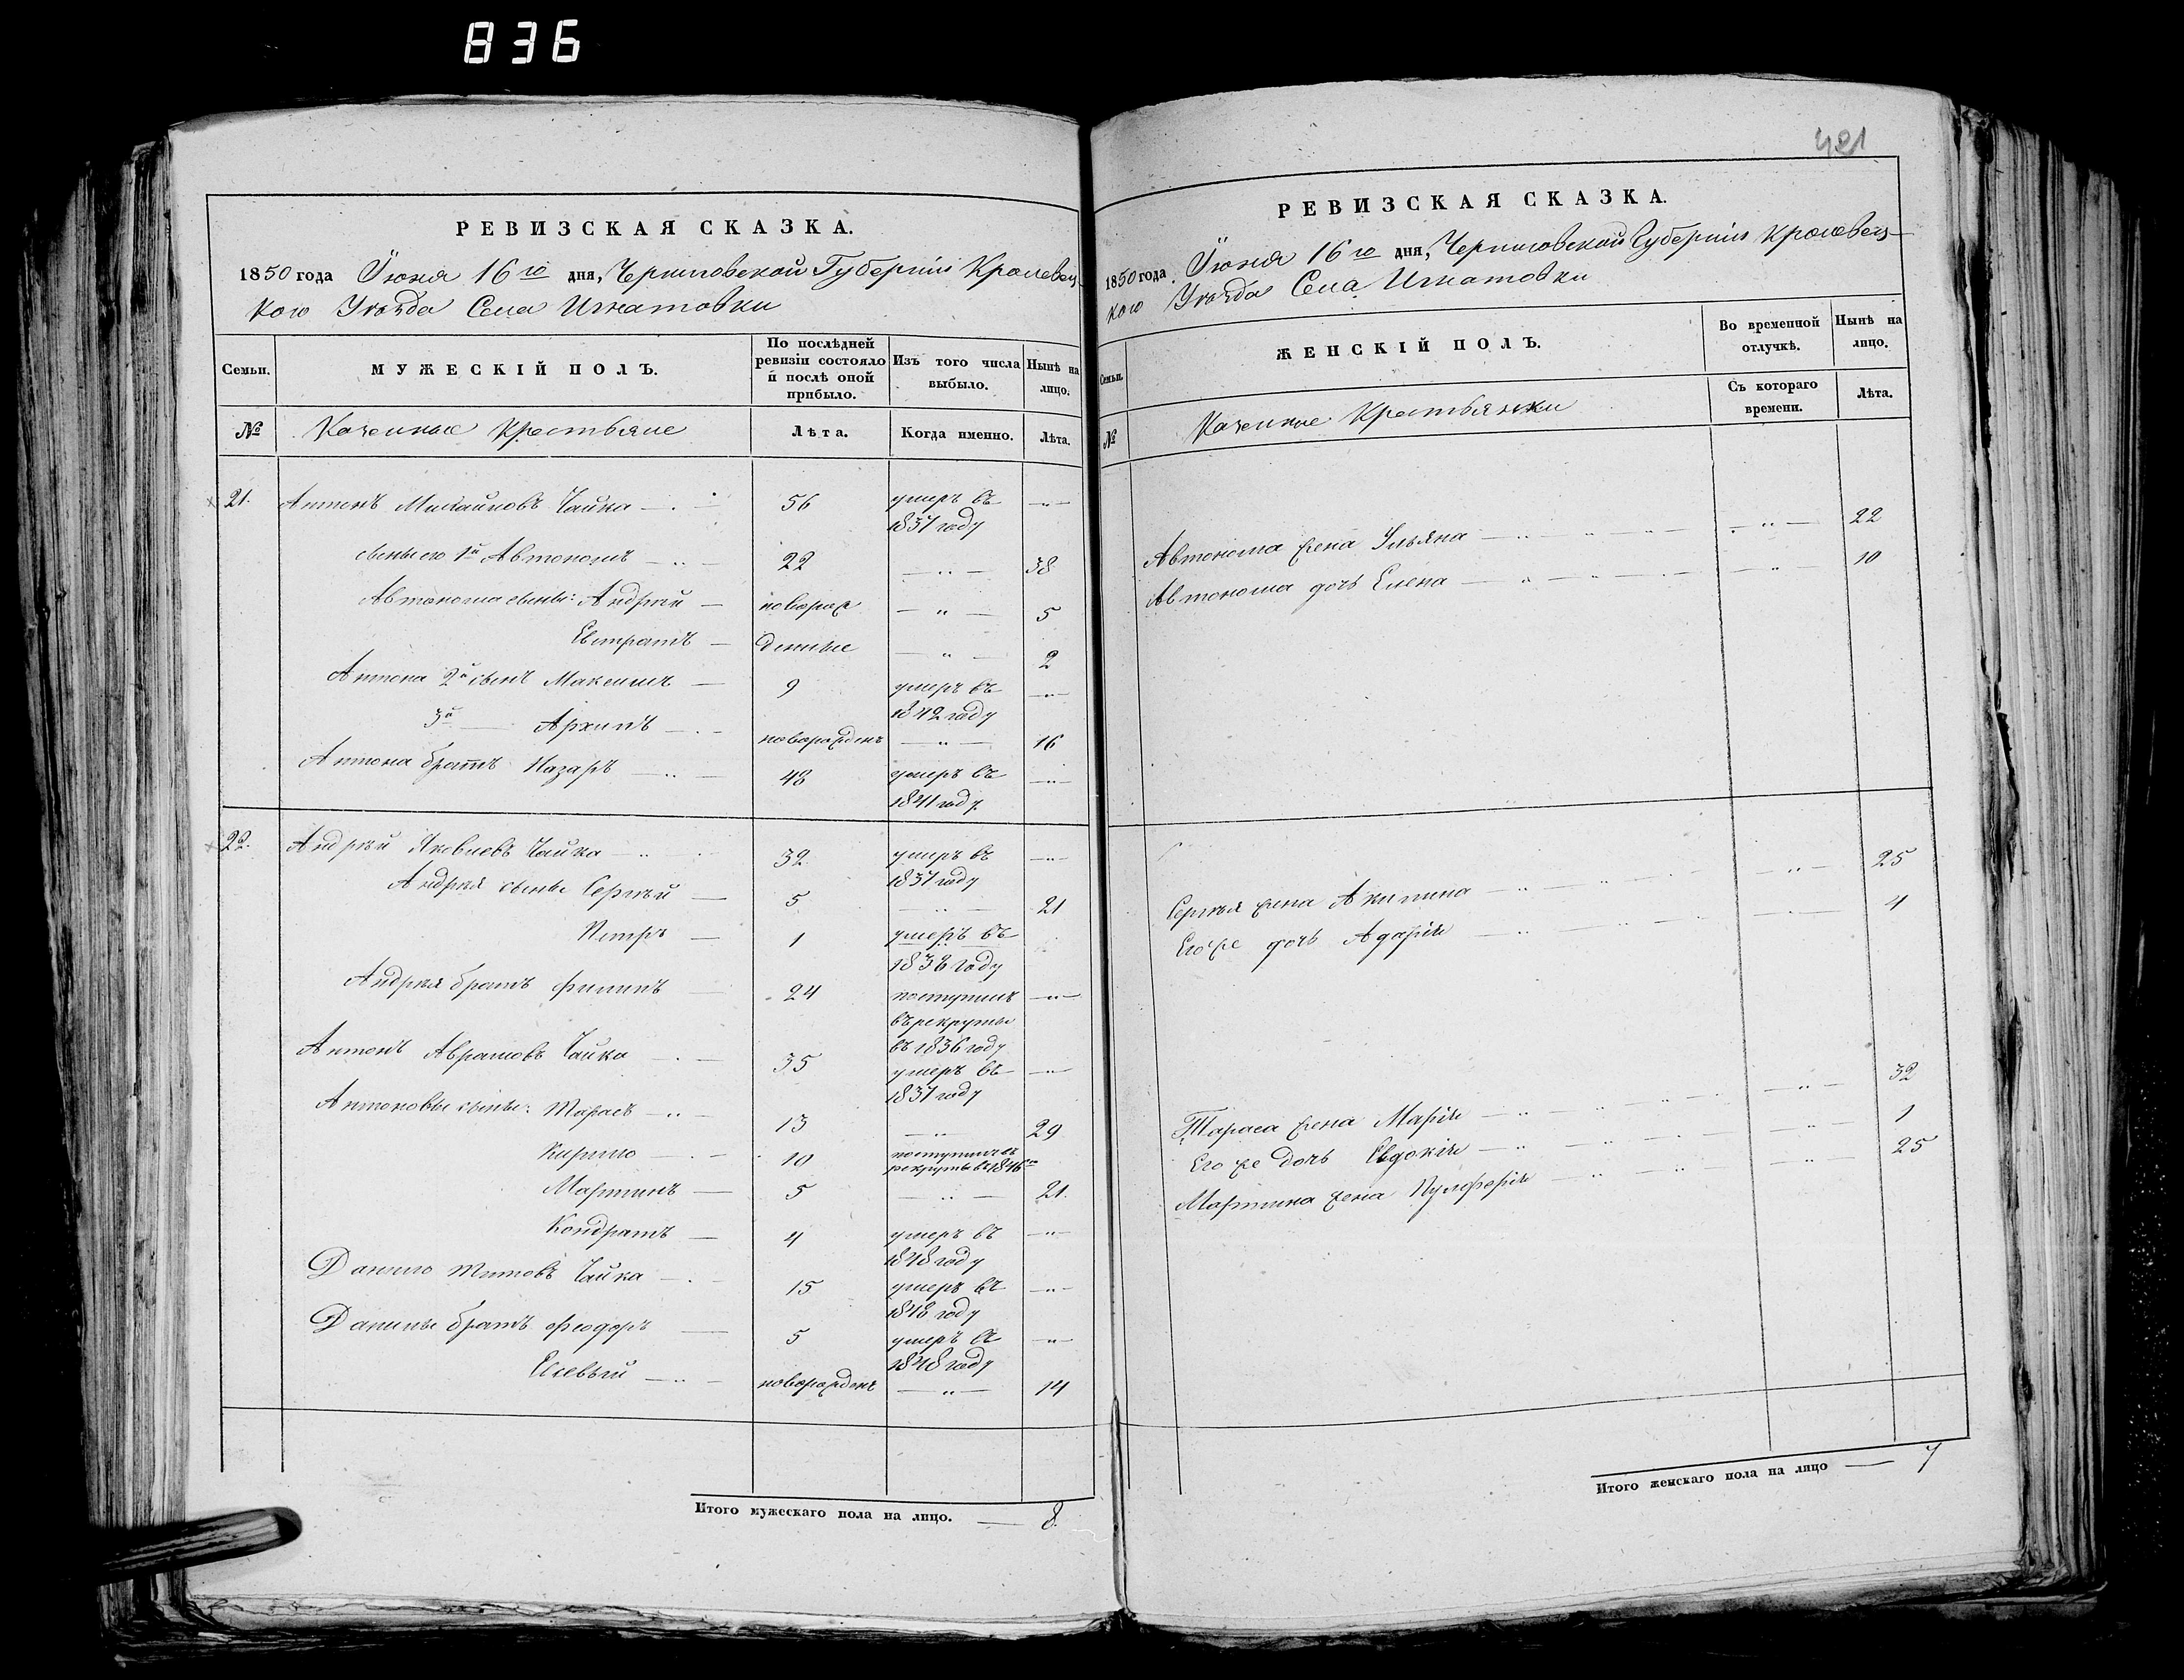 836
РЕВИЗСКАЯ СКАЗКА.
1850 года Іюня 16го дня, Черниговской Губерніи Кролевец-
кого Уѣзда Села Игнатовки
Семьи.
МУЖЕСКІЙ ПОЛЪ.
По послѣдней ревизіи состояло и послѣ оной прибыло.
Изъ того числа выбыло.
Нынѣ на лицо.
№ Казенные Крестьяне Лѣта. Когда именно. Лѣта.
21. Антонъ Михайловъ Чайка — 56 умеръ въ —„—
1837 году
сыны его 1й Автономъ — 22 —„— 38
Автонома сыны: Андрѣй — новорож —„— 5
Евстратъ — денные —„— 2
Антона 2й сынъ Максимъ — 9 умеръ въ —„—
1842 году
3й — Архипъ — новорожденъ —„— 16
Антона братъ Назаръ — 48 умеръ въ —„—
1841 году
22. Андрѣй Яковлевъ Чайка — 32 умеръ въ —„—
1837 году
Андрѣя сыны Сергѣй — 5 —„— 21
Петръ — 1 умеръ въ
1838 году
Андрѣя братъ Филипъ 24 поступилъ —„—
въ рекруты
въ 1836 году
Антонъ Аврамовъ Чайка — 35 умеръ въ —„—
1837 году
Антоновы сыны: Тарасъ — 13 —„— 29
Кирило — 10 поступилъ въ
рекруты въ 1846го
Мартинъ — 5 —„— 21.
Кондратъ — 4 умеръ въ —„—
1848 году
Данило Титовъ Чайка — 15 умеръ въ —„—
1848 году
Данилы братъ Феодоръ — 5 умеръ въ —„—
1848 году
Елевѣй — новорожденъ —„— 14
Итого мужескаго пола на лицо. — 8.
421
РЕВИЗСКАЯ СКАЗКА.
1850 года Іюня 16го дня, Черниговской Губерніи Кролевец-
кого Уѣзда Села Игнатовки
Семьи.
ЖЕНСКІЙ ПОЛЪ.
Во временной отлучкѣ.
Нынѣ на лицо.
№ Казенные Крестьянки
Съ котораго времени.
Лѣта.
Автонома жена Ульяна —„— 22
Автонома дочь Елена —„— 10
Сергѣя жена Акилина —„— 25
Его же дочь Адарія —„— 4
Тараса жена Марія —„— 32
Его же дочь Евдокія —„— 1
Мартина жена Пулхерія —„— 25
Итого женскаго пола на лицо — 7